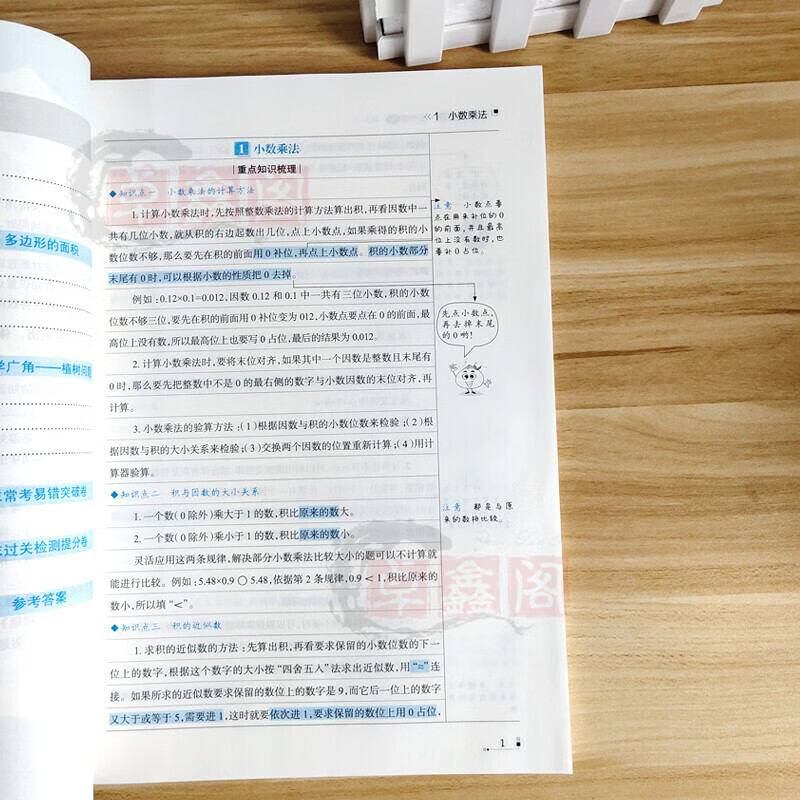 多边形的面积
学广角——植树问题
常考易错突破卷
过关检测提分卷
参考答案
1 小数乘法
1 小数乘法
重点知识梳理
◆知识点一 小数乘法的计算方法
1. 计算小数乘法时,先按照整数乘法的计算方法算出积,再看因数中一
共有几位小数,就从积的右边起数出几位,点上小数点,如果乘得的积的小
数位数不够,那么要先在积的前面用0补位,再点上小数点。积的小数部分
末尾有0时,可以根据小数的性质把0去掉。
例如:0.12×0.1=0.012,因数0.12和0.1中一共有三位小数,积的小数
位数不够三位,要先在积的前面用0补位变为012,小数点要点在0的前面,最
高位上没有数,所以最高位上也要写0占位,最后的结果为0.012。
2. 计算小数乘法时,要将末位对齐,如果其中一个因数是整数且末尾有
0时,那么要先把整数中不是0的最右侧的数字与小数因数的末位对齐,再
计算。
3. 小数乘法的验算方法:(1)根据因数与积的小数位数来检验;(2)根
据因数与积的大小关系来检验;(3)交换两个因数的位置重新计算;(4)用计
算器验算。
◆知识点二 积与因数的大小关系
1. 一个数(0除外)乘大于1的数,积比原来的数大。
2. 一个数(0除外)乘小于1的数,积比原来的数小。
灵活应用这两条规律,解决部分小数乘法比较大小的题可以不计算就
能进行比较。例如:5.48×0.9○5.48,依据第2条规律,0.9<1,积比原来的
数小,所以填“<”。
◆知识点三 积的近似数
1. 求积的近似数的方法:先算出积,再看要求保留的小数位数的下一
位上的数字,根据这个数字的大小按“四舍五入”法求出近似数,用“≈”连
接。如果所求的近似数要求保留的数位上的数字是9,而它后一位上的数字
又大于或等于5,需要进1,这时就要依次进1,要求保留的数位上用0占位,
注意 小数点要
点在用来补位的0
的前面,并且最高
位上没有数时,也
要补0占位。
先点小数点,
再去掉末尾
的0哟!
注意 都是与原
来的数相比较。
1
卓鑫阁